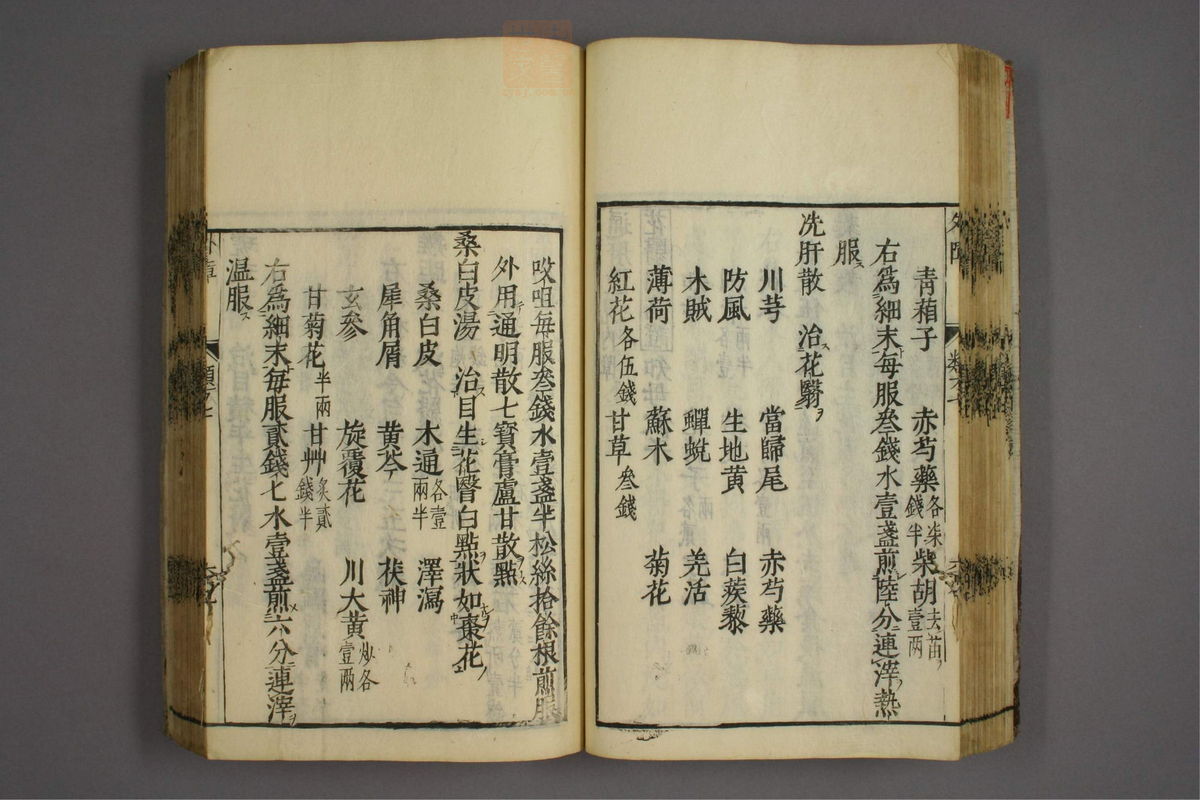 青葙子　赤芍藥各柒錢半　柴胡去苗壹兩
右爲細末每服叁錢水壹盞煎陸分連滓熱
服
洗肝散　治花翳
川芎　當歸尾　赤芍藥
防風　生地黃　白蒺藜
木賊　蟬蛻　羌活
薄荷　蘇木　菊花
紅花各伍錢　甘草叁錢
㕮咀每服叁錢水壹盞半松絲拾餘根煎服
外用通明散七寶膏盧甘散點
桑白皮湯　治目生花醫白點狀如棗花
桑白皮　木通各壹兩半　澤瀉
犀角屑　黃芩　茯神
玄參　旋覆花　川大黃炒各壹兩
甘菊花半兩　甘艸炙貳錢半
右爲細末每服貳錢七水壹盞煎六分連滓
温服